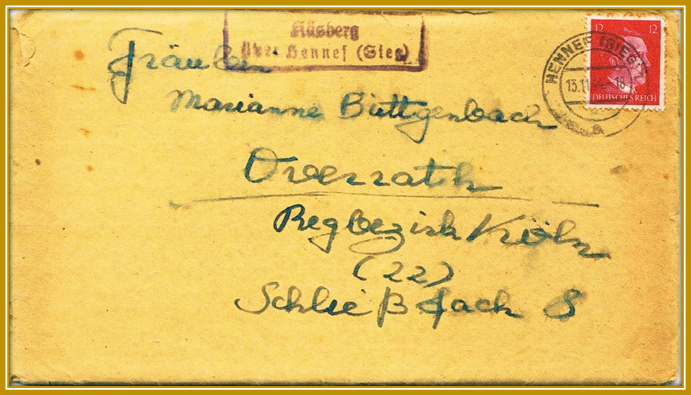 Käsberg
über Hennef (Sieg)
12 12
HENNEF (SIEG)
13.11
DEUTSCHES REICH
Fräulein
Marianne Büttgenbach
Overrath
Regbezirk Köln
(22)
Schließfach 8